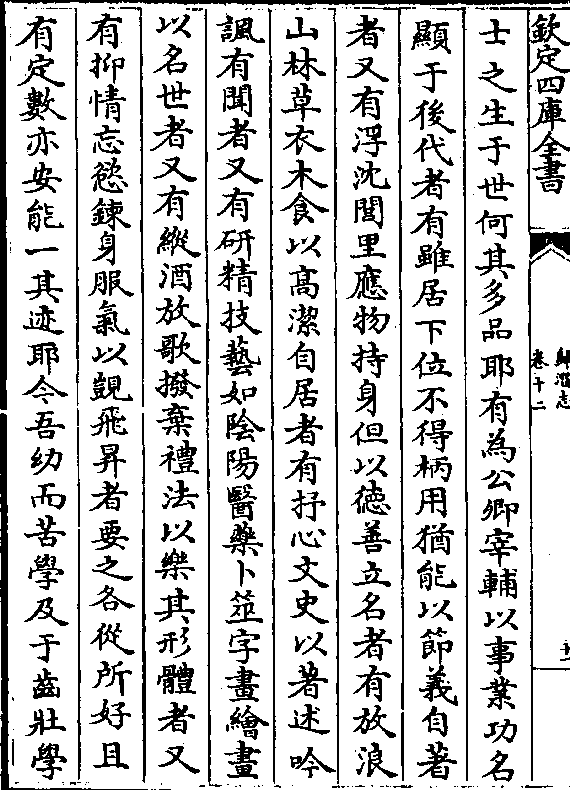 欽定四庫全書
歸潛志
卷十二
士之生于世何其多品耶有為公卿宰輔以事業功名
顯于後代者有雖居下位不得柄用猶能以節義自著
者又有浮沈閭里應物持身但以徳善立名者有放浪
山林草衣木食以髙潔自居者有抒心文史以著述吟
諷有聞者又有研精技藝如隂陽醫藥卜筮字畫繪畫
以名世者又有縱酒放歌撥棄禮法以樂其形體者又
有抑情忘慾鍊身服氣以覬飛昇者要之各從所好且
有定數亦安能一其迹耶今吾幼而苦學及于齒壯學